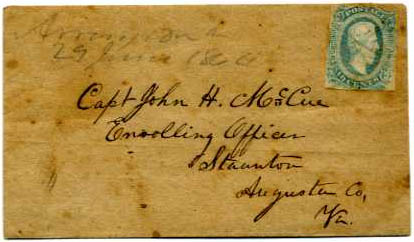 29 June 186
POSTAGE
Capt John H. McCue
Enrolling Officer
Staunton
Augusta Co,
Va.